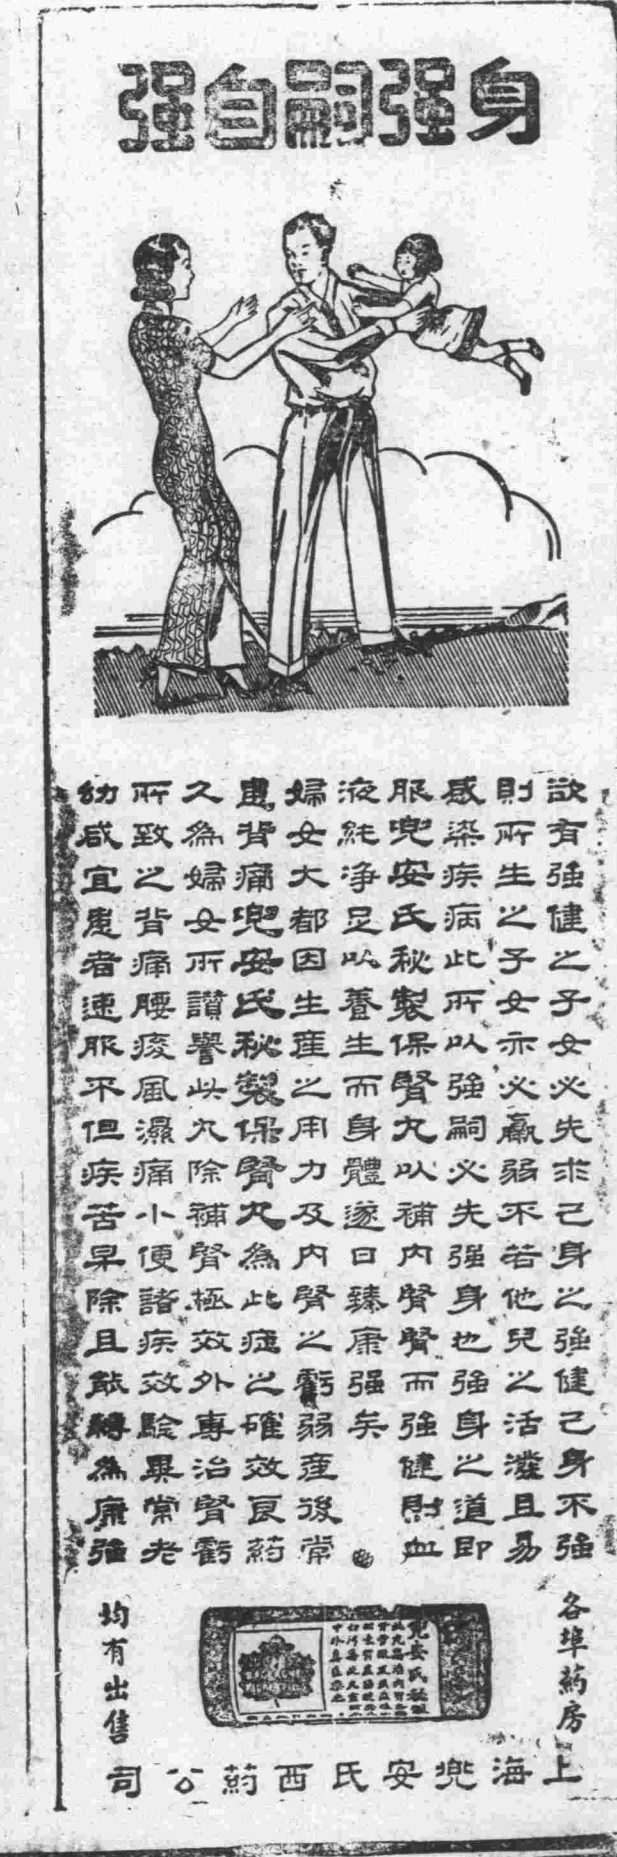 身強嗣自強
欲有強健之子女必先求己身之強健己身不強
則所生之子女亦必羸弱不若他兒之活潑且易
感染疾病此所以強嗣必先強身也強身之道即
服兜安氏秘製保腎丸以補內腎腎而強健則血
液純淨足以養生而身體遂日臻康強矣
婦女大都因生產之用力及內腎之虧弱產後常
患背痛兜安氏秘製保腎丸為此症之確效良葯
久為婦女所讚譽此丸除補腎極效外專治腎虧
所致之背痛腰痠風濕痛小便諸疾效驗異常老
幼咸宜患者速服不但疾苦早除且能轉為康強
各埠葯房
均有出售
兜安氏秘製
上海兜安氏西葯公司